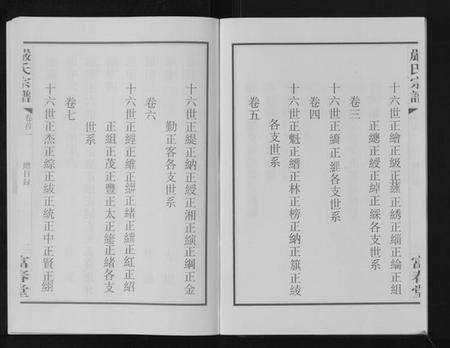 嚴氏宗譜
十六世正繪正級正維正綉正緬正綸正組
正總正綬正綽正綵各支世系
卷三
十六世正纘正經各支世系
卷四
十六世正魁正縉正林正榜正納正旗正綾
各支世系
卷五
富春堂
嚴氏宗譜
卷首一
總目錄
十六世正緹正納正綬正湘正縯正綱正金
勤正客各支世系
卷六
十六世正經正維正 正緒正 正紅正紹
正組正茂正豐正太正 正緒各支
世系
卷七
十六世正杰正綜正綾正統正中正賢正
富春堂